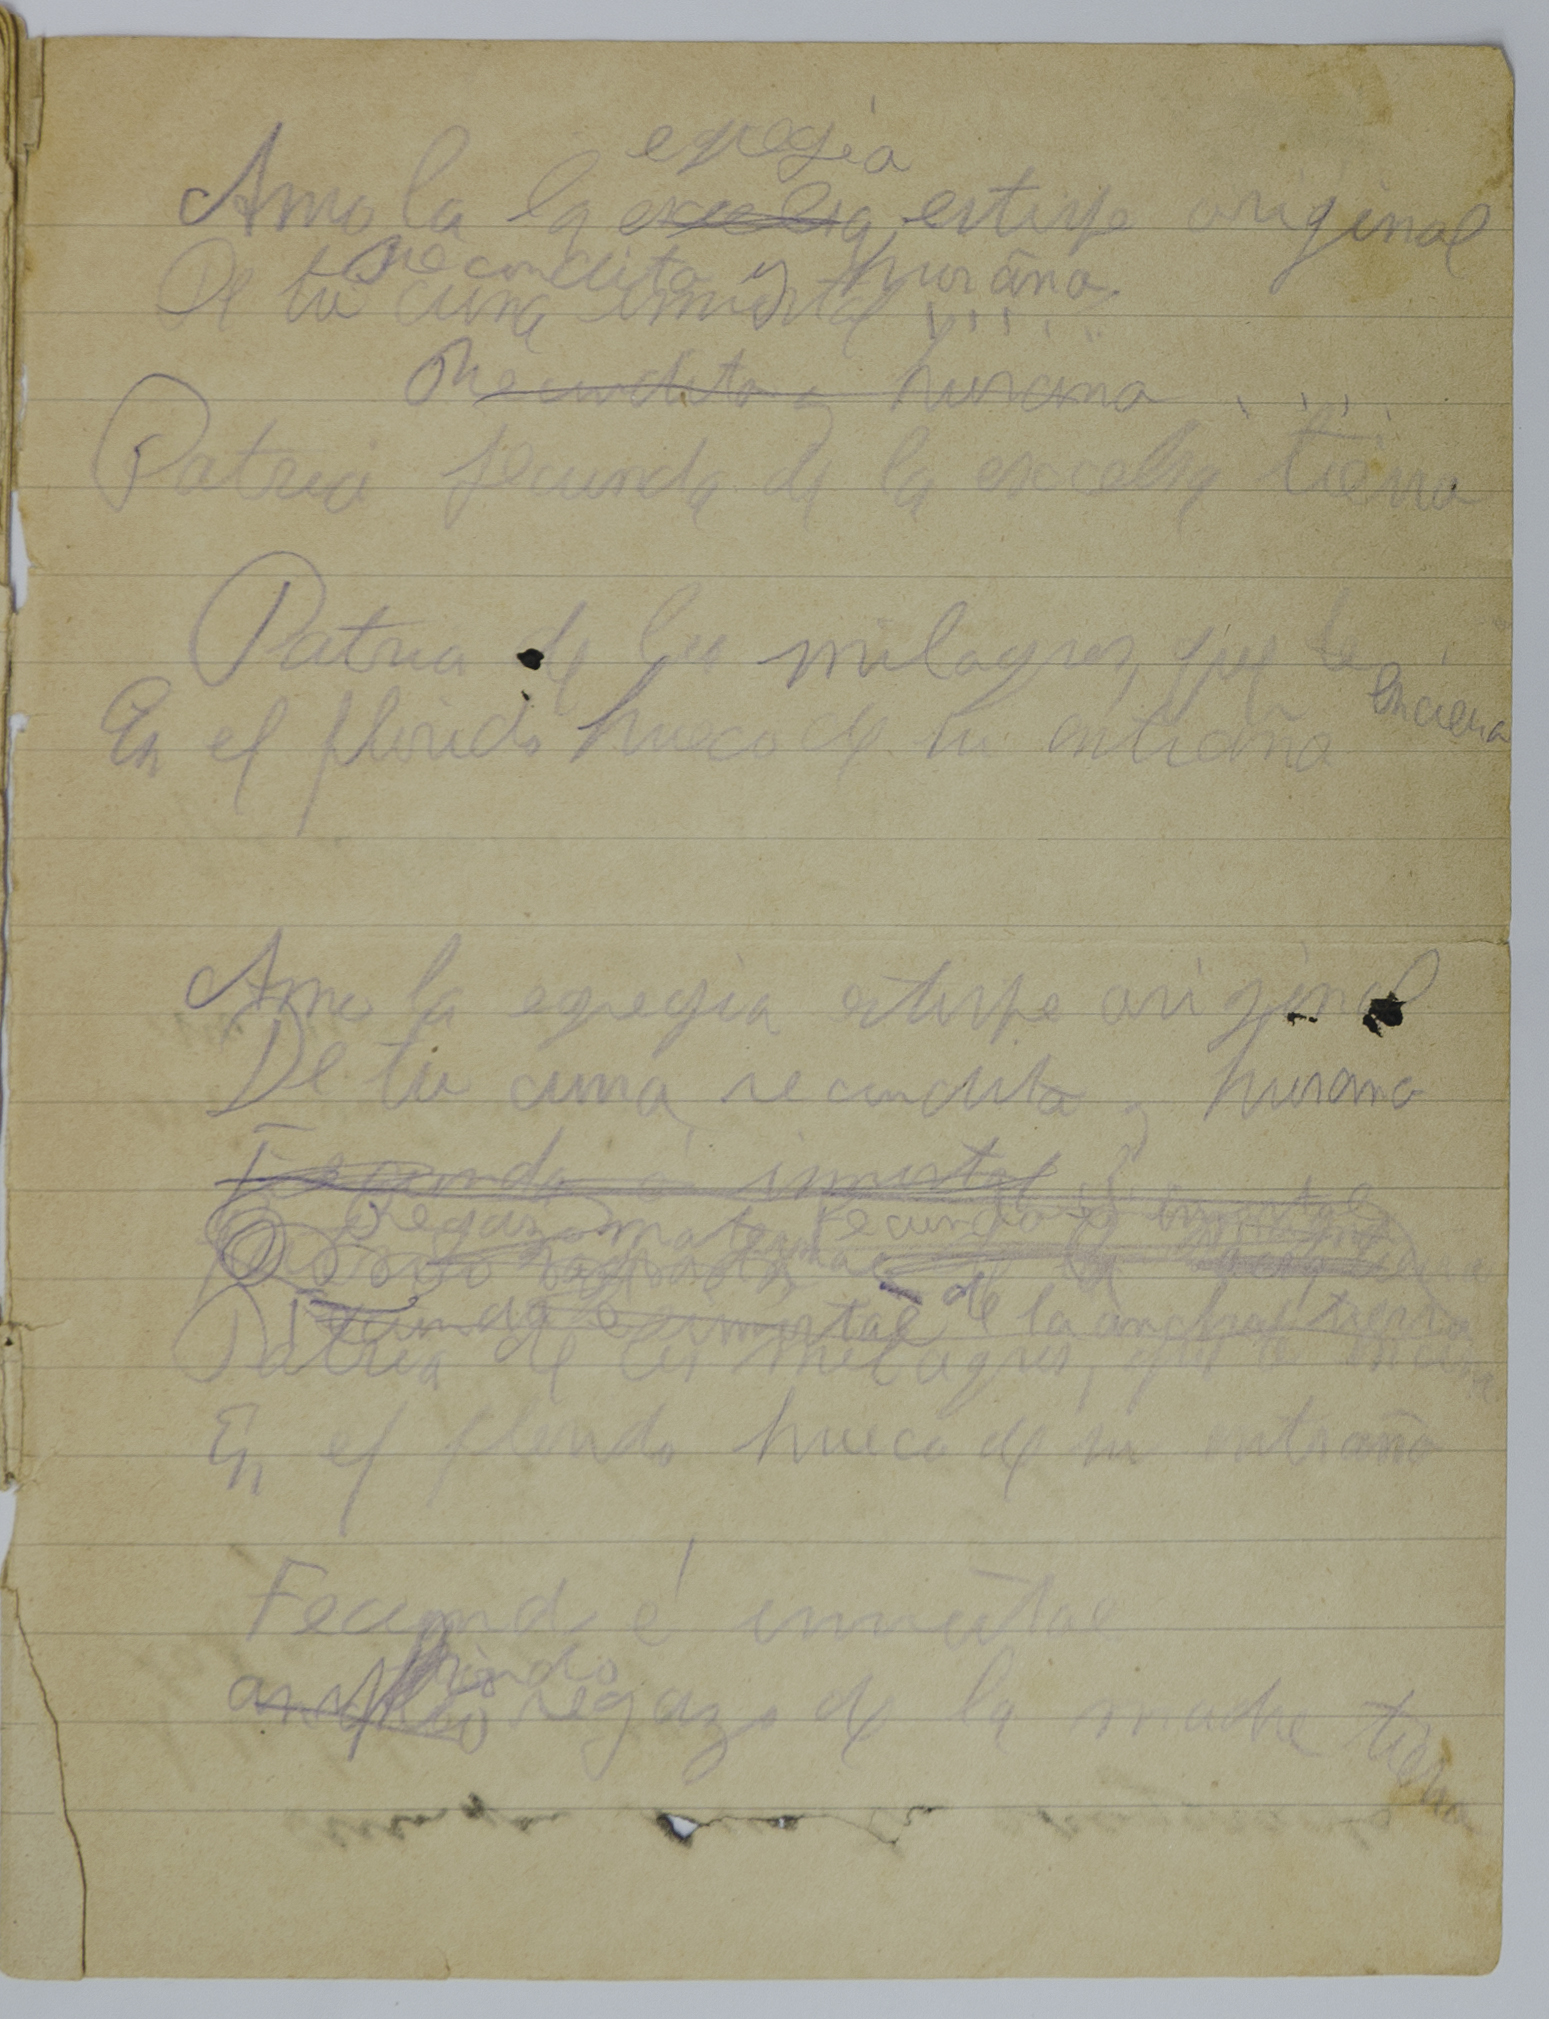 egregia
Amo la la excelsa estirpe original
recondita y huraña
De tu cuna inmortal . . . . .
Recondita y huraña . . . .
Patria fecunda de la excelsa tierra
Patria de los milagros, que la encierra
En el florido hueco de su entraña
Amo la egregia estirpe original
De tu cuna recondita y huraña
Fecunda é inmortal
Regazo maternal Fecundo é inmortal
Fecunda é inmortal de la ancha tierra
Patria de los milagros, que la encierra
En el florido hueco de su entraña
Fecundo é inmortal
regazo de la madre tierra